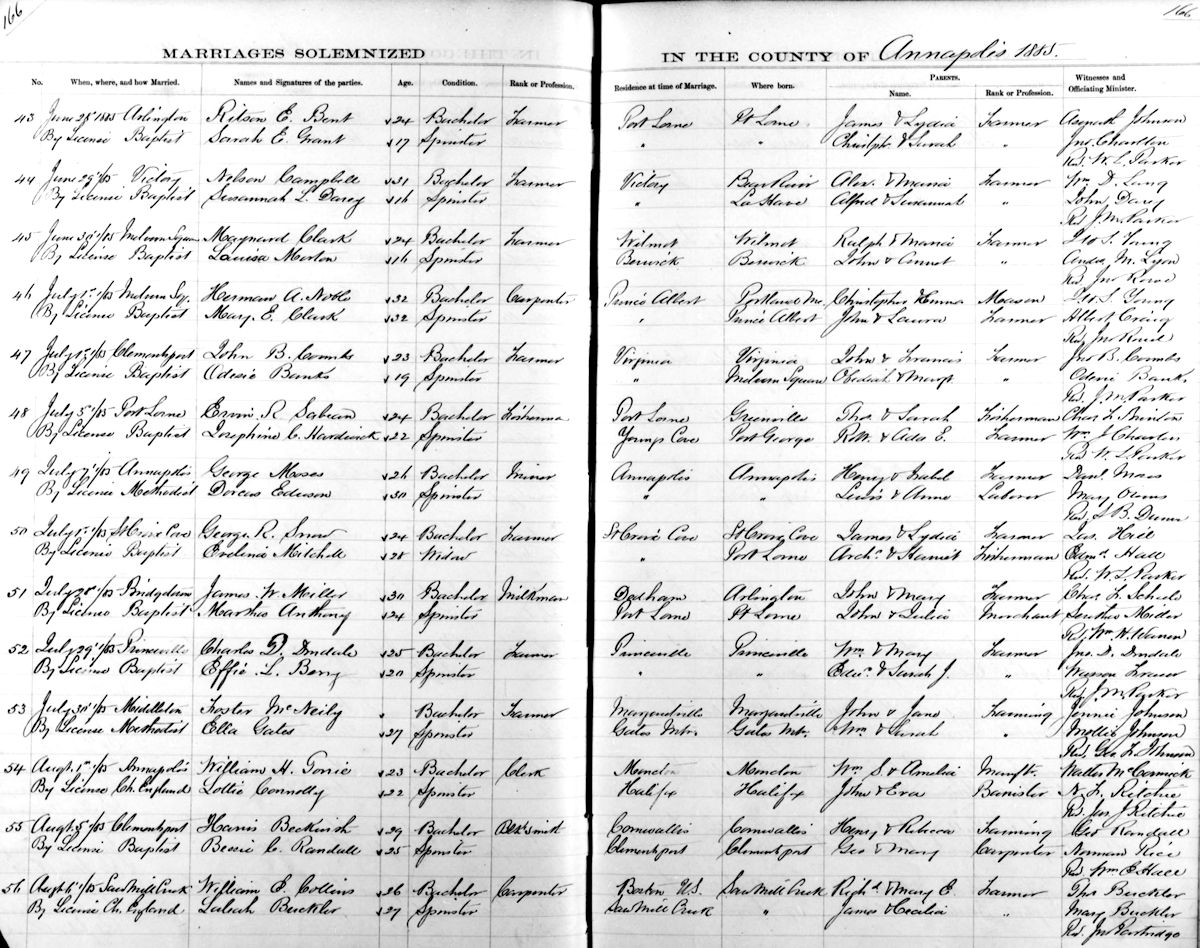 166
166
MARRIAGES SOLEMNIZED IN THE COUNTY OF Annapolis 1885.
No. When, where, and how Married. Names and Signatures of the parties. Age. Condition. Rank or Profession. Residence at time of Marriage. Where born. PARENTS. Name. Rank or Profession. Witnesses and Officiating Minister.
43 June 25 1885 Arlington Ritson E. Bent 24 Bachelor Farmer Port Lorne Pt Lorne James & Lydia Farmer Asenath Johnson
By License Baptist Sarah E. Grant 17 Spinster " " Christph & Sarah " Jno. Charlton
Rev. W. L. Parker
44 June 29 1/85 Victory Nelson Campbell 31 Bachelor Farmer Victory Bear River Alex. & Maria Farmer Wm D. Lang
By License Baptist Susannah L. Darey 16 Spinster " La Have Alfred & Susannah " John Darey
Rev J. M. Parker
45 June 30 1/85 Melvern Square Maynard Clark 24 Bachelor Farmer Wilmot Wilmot Ralph & Maria Farmer S. Young
By License Baptist Louisa Morton 16 Spinster Berwick Berwick John & " M. Lyon
Rev Jno Rowe
46 July 1st 1/85 Melvern Sq. Herman A. Noble 32 Bachelor Carpenter Prince Albert Portland Me. Christopher & Emma Mason S. Young
By License Baptist Mary E. Clark 32 Spinster " Prince Albert John & Laura Farmer Albert Craig
Rev Jno
47 July 1st 1/85 Clementsport John B. Coombs 23 Bachelor Farmer Virginia Virginia John & Francis Farmer Jno B. Coombs
By License Baptist Adesie Banks 19 Spinster " Melvern Square Obediah & Margt " Banks
Rev. J. M. Parker
48 July 5 1/85 Port Lorne Ervin R. Sabean 24 Bachelor Fisherman Port Lorne Granville Thos. & Sarah Fisherman Chas. L. Brinton
By License Baptist Josephine C. Hardwick 22 Spinster Youngs Cove Port George Robt. & Ada E. Farmer Wm. J. Charlton
Rev W. L. Parker
49 July 7 1/85 Annapolis George Moses 26 Bachelor Miner Annapolis Annapolis Henry & Isabel Farmer Danl. Moses
By License Methodist Dorcas Edeison 30 Spinster " " Lewis & Anne Laborer Mary Owens
Rev. S. B. Dunn
50 July 1/85 St Croix Cove George R. Snow 24 Bachelor Farmer St Croix Cove St Croix Cove James & Lydia Farmer Jas. Hall
By License Baptist Evelina Mitchell 28 Widow " Port Lorne Archd. & Harriet Fisherman Edmd. Hall
Rev. W. L. Parker
51 July 28 1/85 Bridgetown James W. Miller 30 Bachelor Milkman Dedham Arlington John & Mary Farmer Chas. F.
By License Baptist Martha Anthony 24 Spinster Port Lorne Pt Lorne John & Julia Merchant
Rev. Wm. H. Warren
52 July 29 1/85 Princeville Charles D. Dindale 25 Bachelor Farmer Princeville Princeville Wm & Mary Farmer Jno. D. Dindale
By License Baptist Effie L. Berry 20 Spinster " " Edwd. & Sarah J. " Fraser
Rev J. M. Parker
53 July 30 1/85 Middleton Foster McNeily " Bachelor Farmer Margaretville Margaretville John & Jane Farming Jennie Johnson
By License Methodist Ella Gates 27 Spinster Gates Mtn. Gates Mtn. Wm & Sarah " Mollie Johnson
Rev. Geo F. Johnson
54 Augt. 1st 1/85 Annapolis William H. Torrie 23 Bachelor Clerk Moncton Moncton Wm. S. & Amelia Manftr. Walter McCormick
By License Ch. England Lottie Connolly 22 Spinster Halifx Halifx John & Eva Barrister N. L. Ritchie
Rev. Jas J. Ritchie
55 Augt. 5 1/85 Clementsport Harris Beckwith 29 Bachelor Blksmith Cornwallis Cornwallis Henry & Rebecca Farming Geo Randall
By License Baptist Bessie C. Randall 25 Spinster Clementsport Clementsport Geo & Mary Carpenter Norman Rice
Rev. Wm E Hall
56 Augt. 6 1/85 Saw Mill Creek William E. Collins 26 Bachelor Carpenter Boston U.S. Saw Mill Creek Richd & Mary E. Farmer Thos Buckler
By License Ch. England Laleah Buckler 27 Spinster Saw Mill Creek " James & Cecilia " Mary Buckler
Rev. Jno Partridge